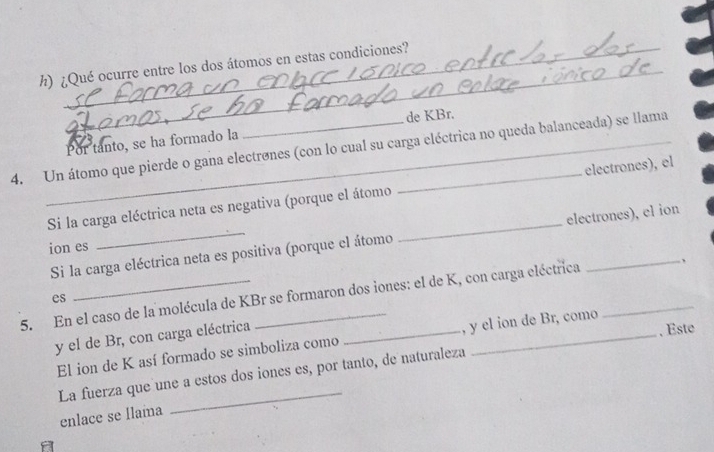 h) ¿Qué ocurre entre los dos átomos en estas condiciones?
se forma un enlace iónico entre los dos
átomos. se ha formado un enlace iónico de
KBr
Por tanto, se ha formado la ____ de KBr.
4. Un átomo que pierde o gana electrones (con lo cual su carga eléctrica no queda balanceada) se llama
____
Si la carga eléctrica neta es negativa (porque el átomo ____ electrones), el
ion es ____
Si la carga eléctrica neta es positiva (porque el átomo ____ electrones), el ion
es ____
5. En el caso de la molécula de KBr se formaron dos iones: el de K, con carga eléctrica ____,
y el de Br, con carga eléctrica ____
El ion de K así formado se simboliza como ____, y el ion de Br, como ____
La fuerza que une a estos dos iones es, por tanto, de naturaleza ____. Este
enlace se llama ____